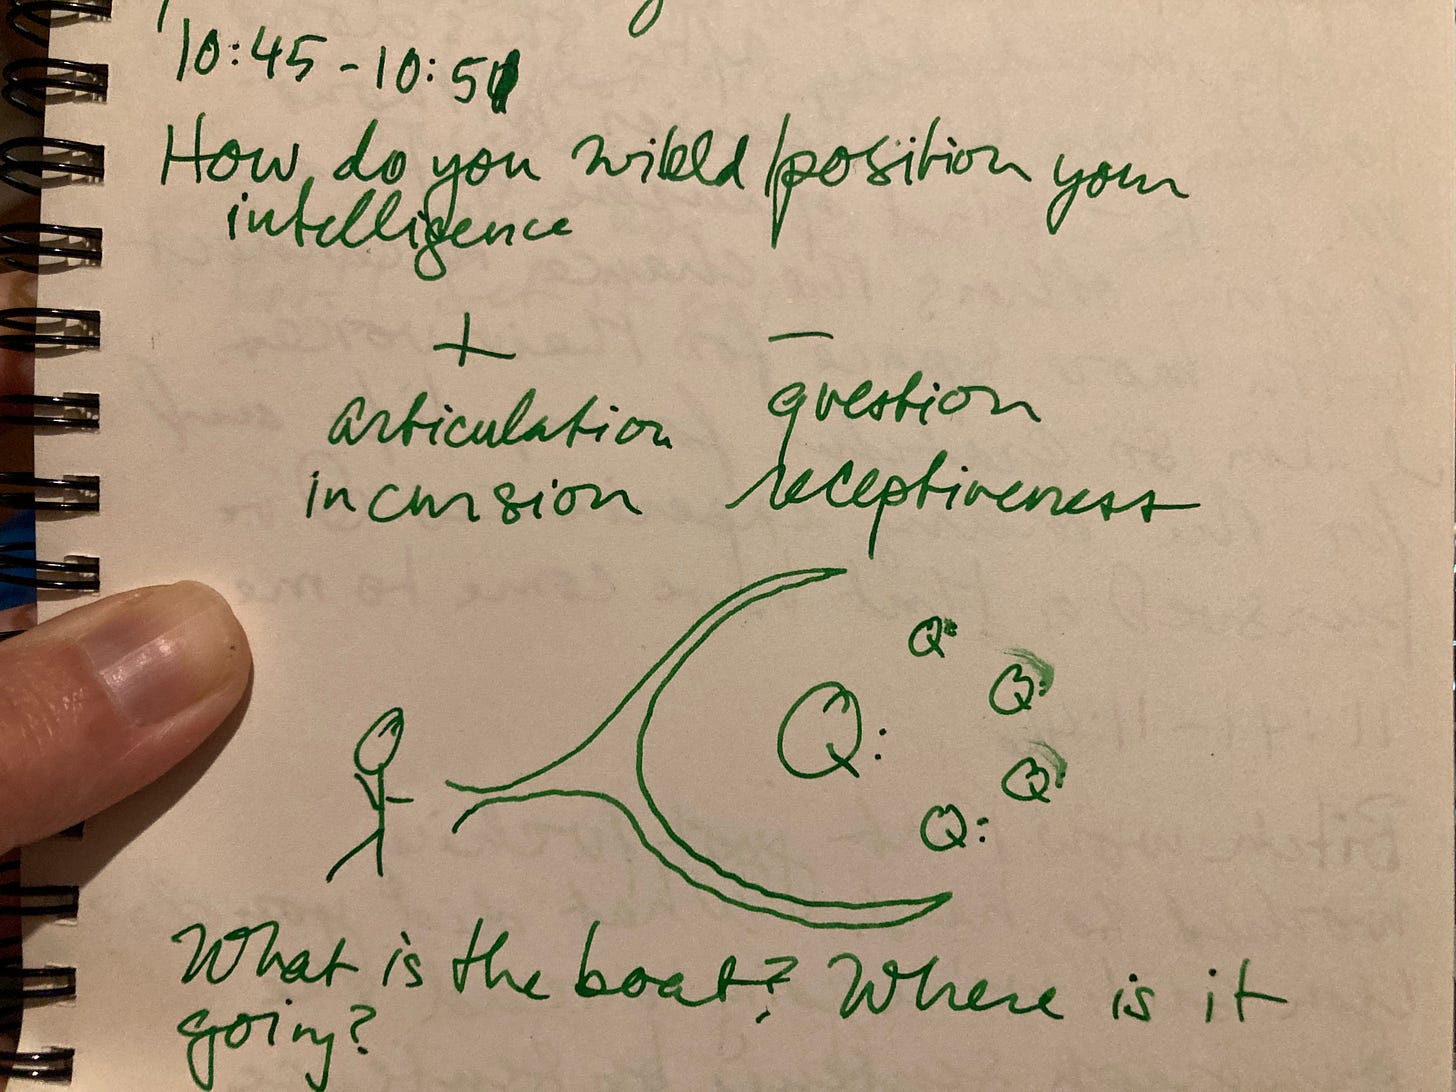 10:45 - 10:51
How do you wield/position your
intelligence
+ –
articulation question
incursion receptiveness
Q:
Q:
Q:
Q:
Q:
What is the boat? Where is it
going?